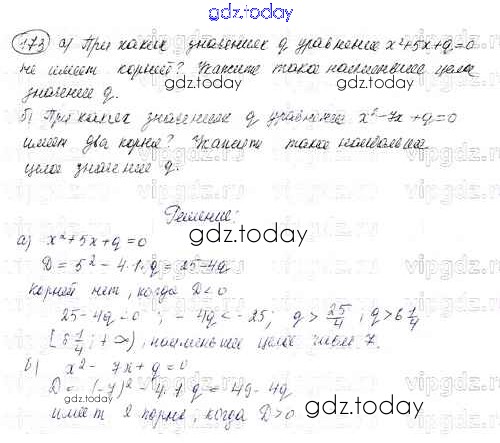 gdz.today
173 а) При каких значениях q уравнение x²+5x+q=0
не имеет корней? Укажите такое наименьшее целое
значение q.
б) При каких значениях q уравнение x²-7x+q=0
имеет два корня? Укажите такое наибольшее
целое значение q.
Решение:
gdz.today
а) x²+5x+q=0
D = 5² - 4·1·q = 25-4q
корней нет, когда D<0
25-4q<0 ; -4q<-25; q > 25/4 ; q>6 1/4
[6 1/4; +∞), наименьшее целое число 7.
б) x² - 7x + q = 0
D = (-7)² - 4·1·q = 49-4q
имеет 2 корня, когда D>0
gdz.today